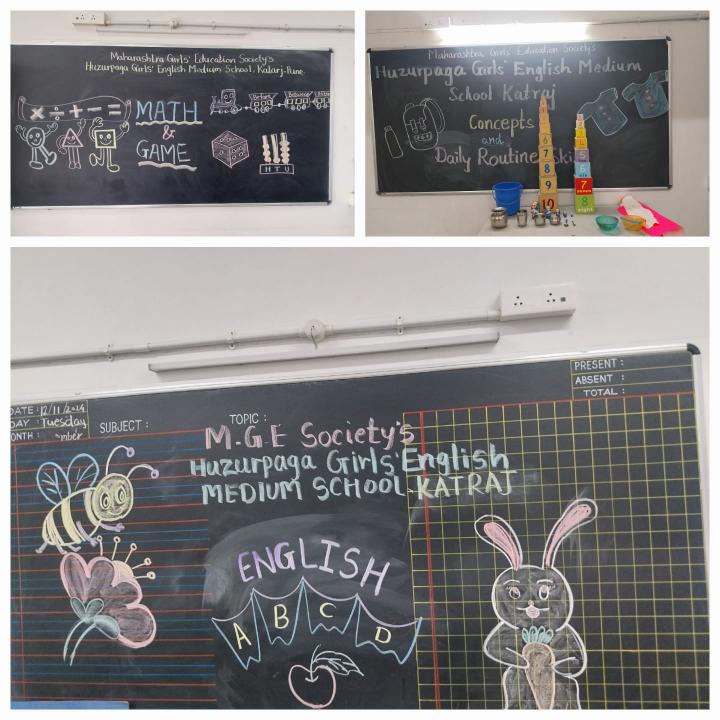 Maharashtra Girls' Education Society's
Huzurpaga Girls' English Medium School, Katarj-Pune.
× ÷ + - =
MATH
&
GAME
Before
Between
H T U
Maharashtra Girls' Education Society's
Huzurpaga Girls' English Medium
School Katraj
Concepts
and
Daily Routine Ski
6
7
8
9
10
4
5
6
7
8
eight
DATE : 12/11/2024
DAY : Tuesday
MONTH : mber
SUBJECT :
TOPIC :
PRESENT :
ABSENT :
TOTAL :
M.G.E Society's
Huzurpaga Girls' English
MEDIUM SCHOOL KATRAJ
ENGLISH
A B C D